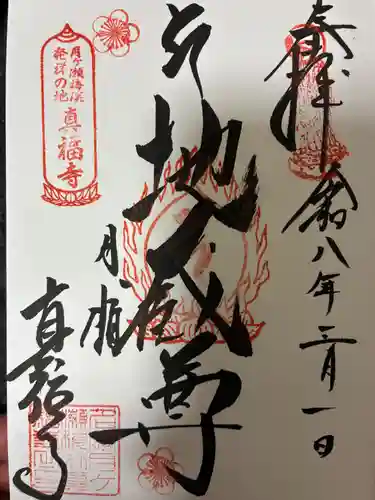 奉拝
令和八年三月一日
地蔵尊
月瀬
真福寺
月ヶ瀬梅渓
発祥の地
真福寺